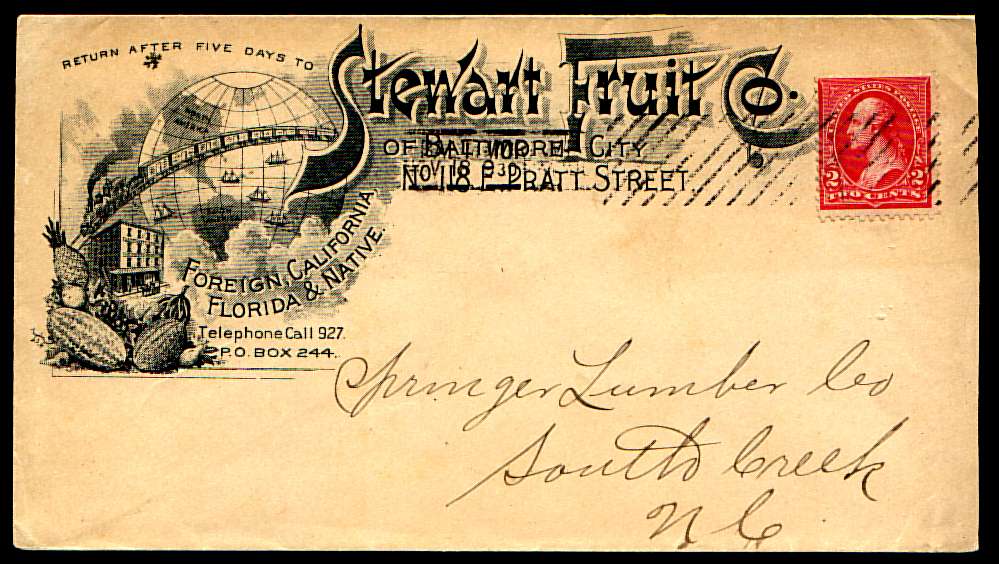 RETURN AFTER FIVE DAYS TO
Stewart Fruit Co.
OF BALTIMORE CITY
No. 118 E. PRATT STREET.
NOV 18 8 30
FOREIGN, CALIFORNIA,
FLORIDA & NATIVE.
Telephone Call 927.
P.O. BOX 244.
UNITED STATES POSTAGE
2 TWO CENTS 2
Springer Lumber Co
South Creek
N C